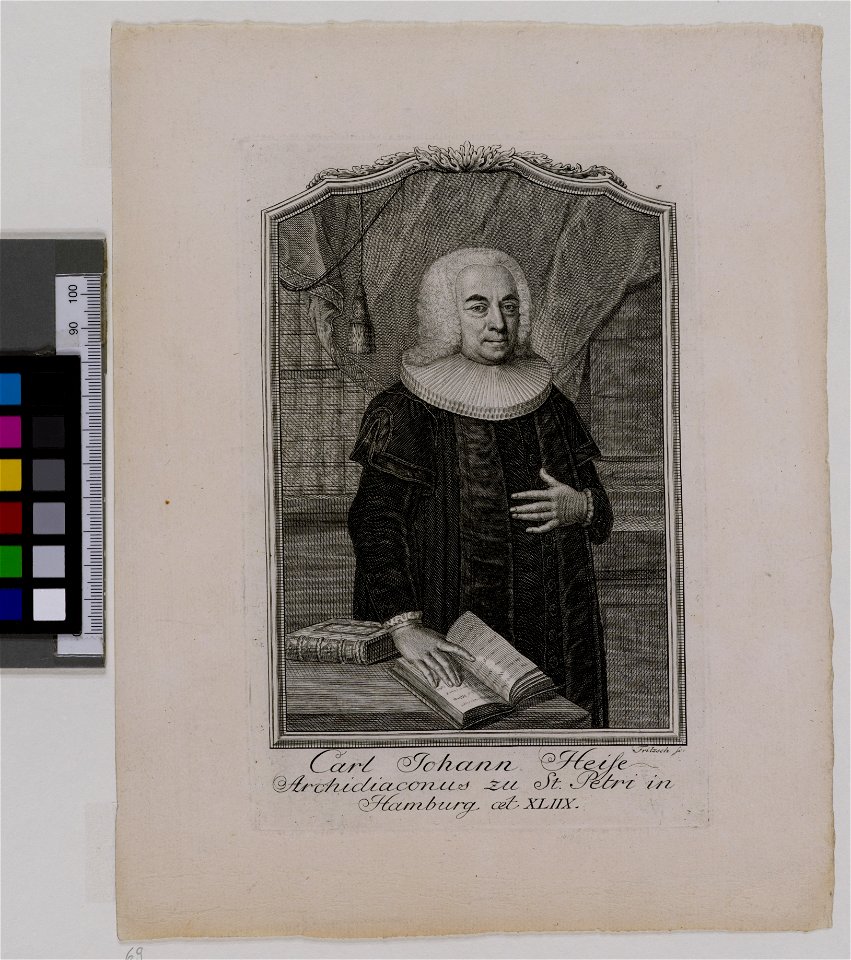 100
90
Fritzsch sc.
Carl Iohann Heiſe
Archidiaconus zu St. Petri in
Hamburg. æt XLIIX.
69